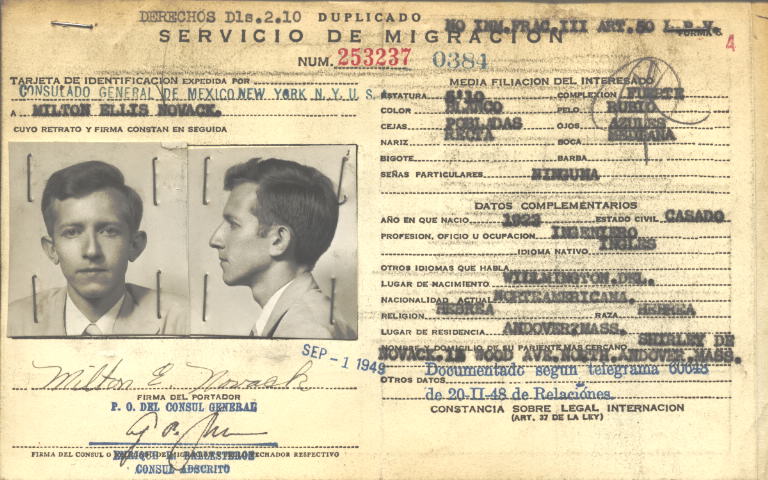 DERECHOS Dls.2.10 DUPLICADO
NO INM.FRAC.III ART.50 L.P.V.
SERVICIO DE MIGRACION
FORMA 5.
4
NUM. 253237 0384
TARJETA DE IDENTIFICACION EXPEDIDA POR
CONSULADO GENERAL DE MEXICO NEW YORK N.Y. U.S.
A MILTON ELLIS NOVACK.
CUYO RETRATO Y FIRMA CONSTAN EN SEGUIDA
SEP -1 1949
Milton E. Novack
FIRMA DEL PORTADOR
P. O. DEL CONSUL GENERAL
FIRMA DEL CONSUL O RESPECTIVO
CONSUL ADSCRITO
MEDIA FILIACION DEL INTERESADO
ESTATURA 5'10 COMPLEXION FUERTE
COLOR BLANCO PELO RUBIO
CEJAS POBLADAS OJOS AZULES
NARIZ RECTA BOCA MEDIANA
BIGOTE BARBA
SEÑAS PARTICULARES NINGUNA
DATOS COMPLEMENTARIOS
AÑO EN QUE NACIO 1923 ESTADO CIVIL CASADO
PROFESION, OFICIO U OCUPACION INGENIERO
IDIOMA NATIVO INGLES
OTROS IDIOMAS QUE HABLA
LUGAR DE NACIMIENTO WILLMINGTON.DEL.
NACIONALIDAD ACTUAL NORTEAMERICANA.
RELIGION HEBREA RAZA HEBREA
LUGAR DE RESIDENCIA ANDOVER,MASS.
NOMBRE Y DOMICILIO DE SU PARIENTE MAS CERCANO SHIRLEY DE
NOVACK. WOOD AVE.NORTH.ANDOVER.MASS.
Documentado segun telegrama 60648
OTROS DATOS
de 20-II-48 de Relaciónes.
CONSTANCIA SOBRE LEGAL INTERNACION
(ART. 37 DE LA LEY)